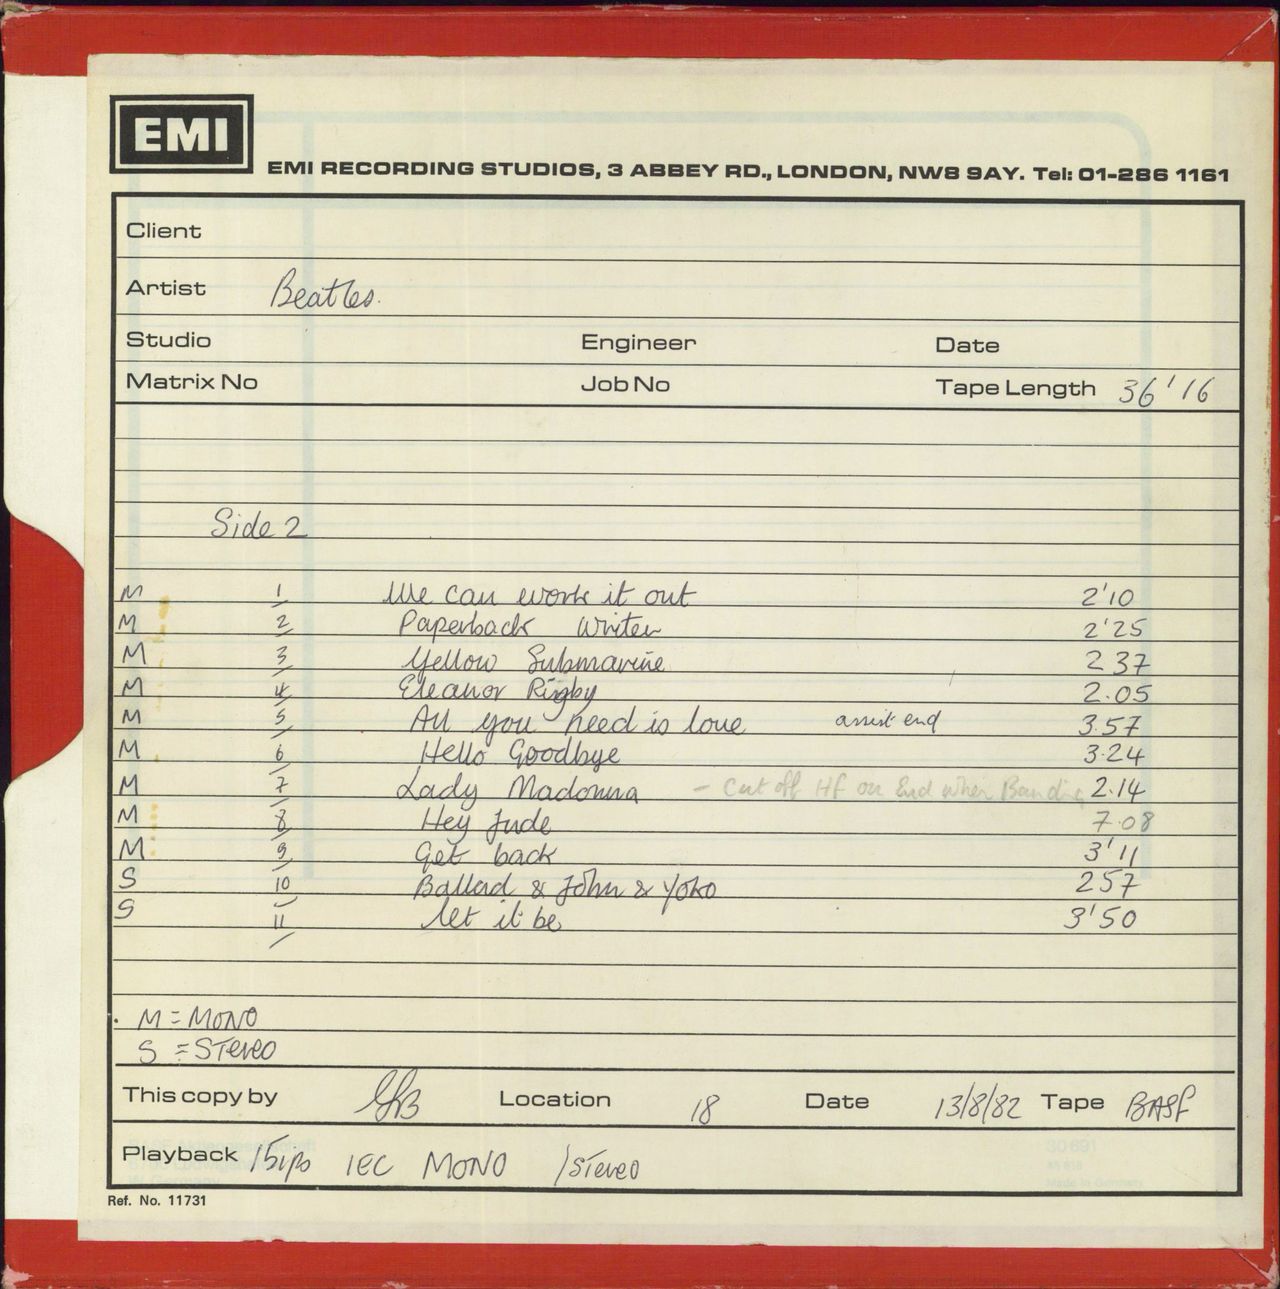 EMI
EMI RECORDING STUDIOS, 3 ABBEY RD., LONDON, NW8 9AY. Tel: 01-286 1161
Client
Artist Beatles.
Studio Engineer Date
Matrix No Job No Tape Length 36'16
Side 2
M 1 We can work it out 2'10
M 2 Paperback Writer 2'25
M 3 Yellow Submarine 2 37
M 4 Eleanor Rigby 2.05
M 5 All you need is love assist end 3.57
M 6 Hello Goodbye 3.24
M 7 Lady Madonna - Cut off HF on End when Banding 2.14
M 8 Hey Jude 7.08
M 9 Get back 3'11
S 10 Ballad & John & Yoko 2 57
S 11 Let it be 3'50
M = MONO
S = Stereo
This copy by Location 18 Date 13/8/82 Tape BASF
Playback 15ips IEC MONO /Stereo
Ref. No. 11731
30 691
Made in Germany